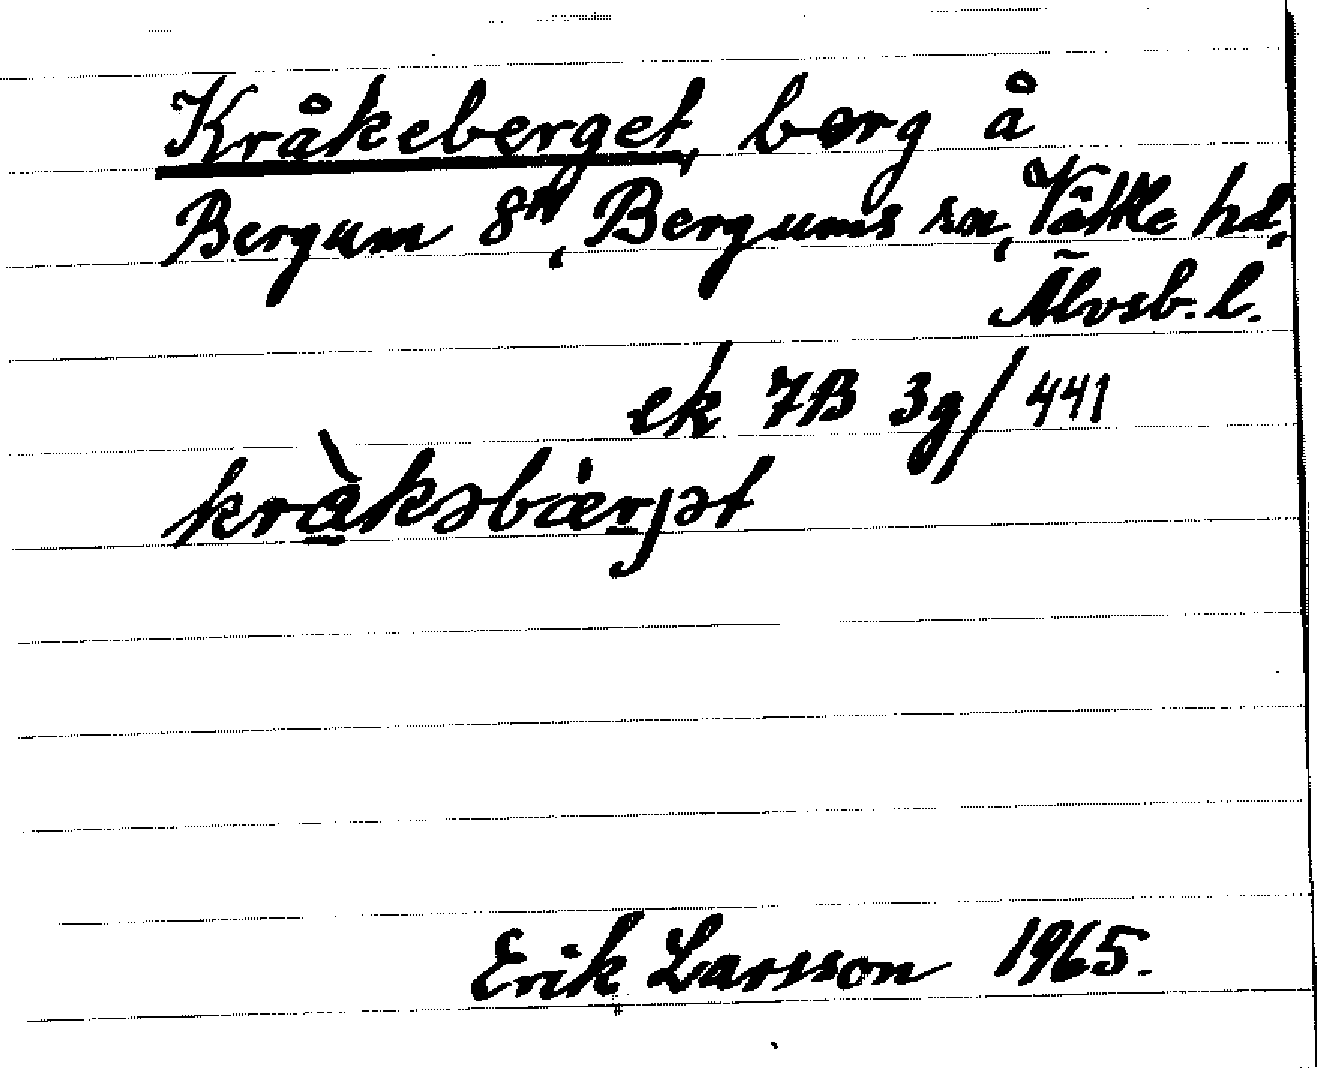 Kråkeberget, berg å
Bergum 8n, Bergums sn, Vättle hd,
Älvsb. l.
ek 7B 3g/441
kràkəbærjət
Erik Larsson 1965.